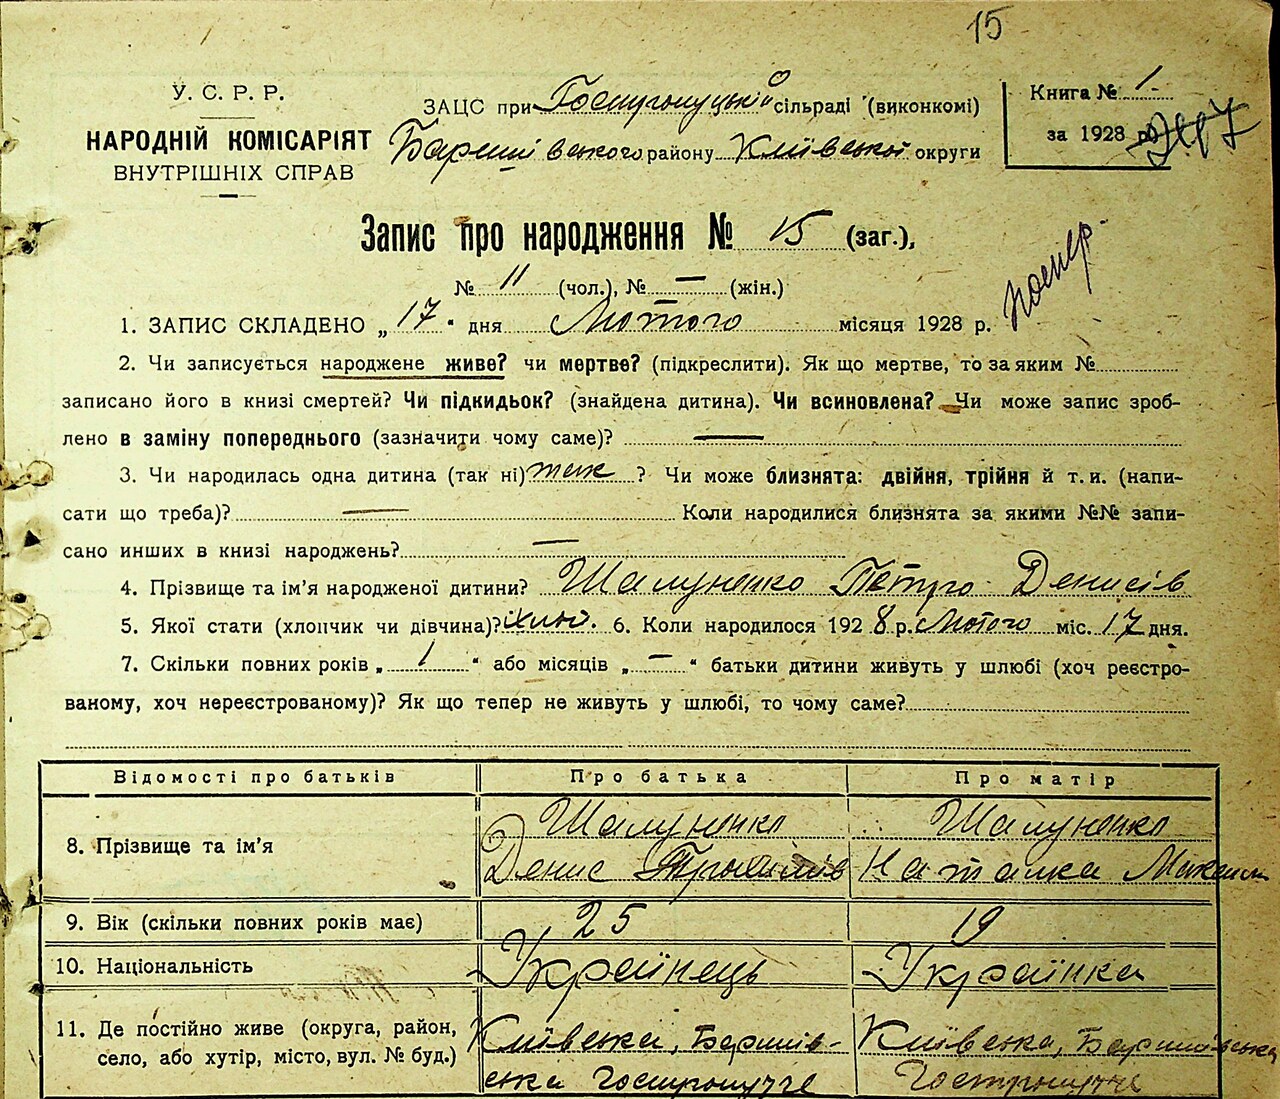 15
У. С. Р. Р.
НАРОДНІЙ КОМІСАРІЯТ
ВНУТРІШНІХ СПРАВ
ЗАЦС при Гостролуцькій сільраді (виконкомі)
Баришівського району Київської округи
Книга № 1
за 1928 р.
Запис про народження № 15 (заг.),
№ 11 (чол.), № — (жін.)
помер
1. ЗАПИС СКЛАДЕНО „17" дня Лютого місяця 1928 р.
2. Чи записується народжене живе? чи мертве? (підкреслити). Як що мертве, то за яким №
записано його в книзі смертей? Чи підкидьок? (знайдена дитина). Чи всиновлена? Чи може запис зроб-
лено в заміну попереднього (зазначити чому саме)? —
3. Чи народилась одна дитина (так ні) так ? Чи може близнята: двійня, трійня й т. и. (напи-
сати що треба)? — Коли народилися близнята за якими №№ запи-
сано инших в книзі народжень? —
4. Прізвище та ім'я народженої дитини? Шалуненко Петро Денисів
5. Якої стати (хлопчик чи дівчина)? 6. Коли народилося 1928 р. Лютого міс. 17 дня.
7. Скільки повних років „1" або місяців „—" батьки дитини живуть у шлюбі (хоч реєстро-
ваному, хоч нереєстрованому)? Як що тепер не живуть у шлюбі, то чому саме?
Відомості про батьків Про батька Про матір
8. Прізвище та ім'я
Шалуненко Шалуненко
Денис Наталка
9. Вік (скільки повних років має) 25 19
10. Національність Українець Українка
11. Де постійно живе (округа, район,
село, або хутір, місто, вул. № буд.)
Київська, Баришів- Київська, Баришівська
ська Гостролуччє Гостролуччє